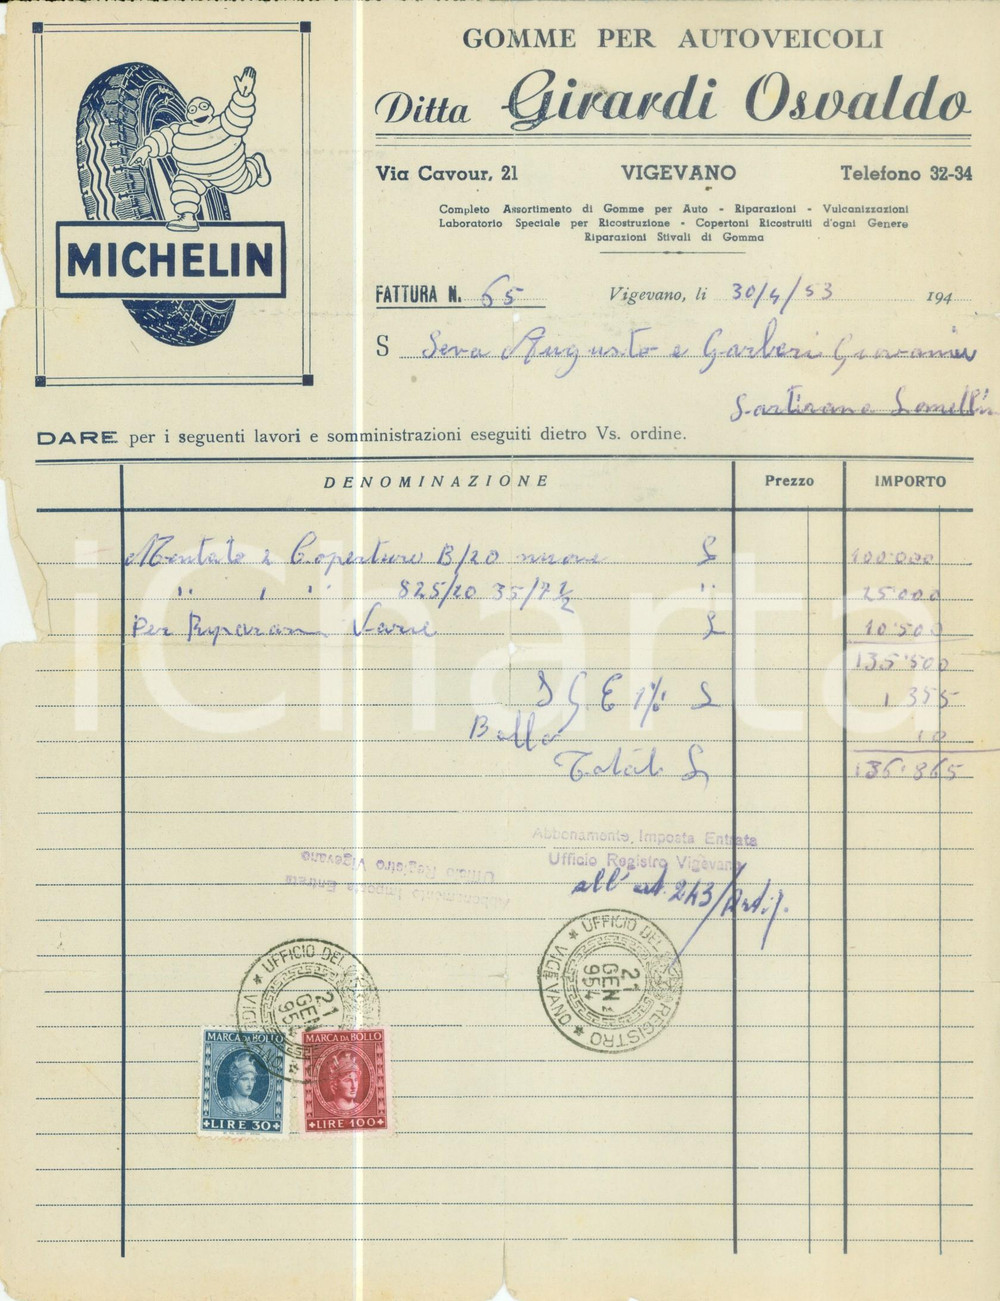 GOMME PER AUTOVEICOLI
Ditta Girardi Osvaldo
MICHELIN
Via Cavour, 21 VIGEVANO Telefono 32-34
Completo Assortimento di Gomme per Auto - Riparazioni - Vulcanizzazioni
Laboratorio Speciale per Ricostruzione - Copertoni Ricostruiti d'ogni Genere
Riparazioni Stivali di Gomma
FATTURA N. 65 Vigevano, li 30/4/53 194
S Seva Augusto e Garberi Giovanni
Sartirana Lomellin
DARE per i seguenti lavori e somministrazioni eseguiti dietro Vs. ordine.
DENOMINAZIONE Prezzo IMPORTO
Montato 2 Coperture B/20 nuove £ 100.000
" " " 825/20 35/7 1/2 " 25.000
Per Riparazioni Varie £ 10.500
135.500
I G E 1% £ 1.355
Bollo 10
Total £ 136.865
Abbonamento Imposta Entrata
Ufficio Registro Vigevano
all' art. 243/
Abbonamento Imposta Entrata
Ufficio Registro Vigevano
UFFICIO DEL REGISTRO VIGEVANO
21 GEN 954
UFFICIO DEL REGISTRO VIGEVANO
21 GEN 954
MARCA DA BOLLO
LIRE 30
MARCA DA BOLLO
LIRE 100
iCharta